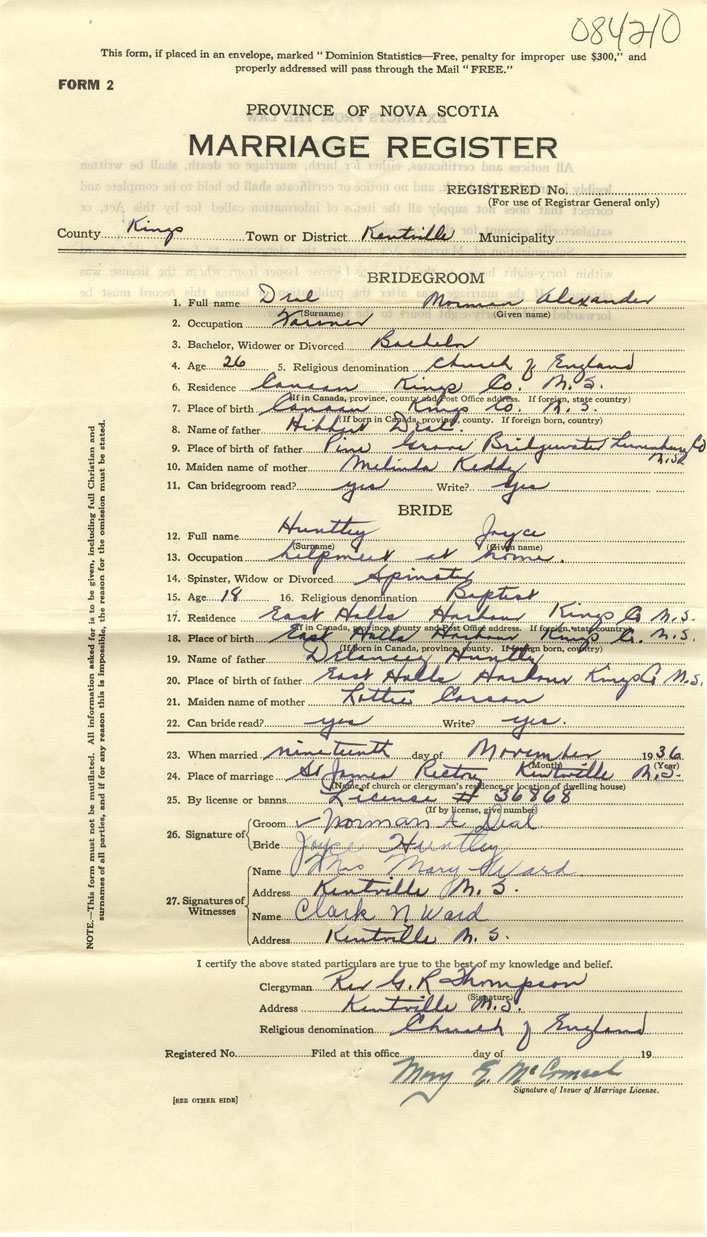 084210
This form, if placed in an envelope, marked "Dominion Statistics—Free, penalty for improper use $300," and
properly addressed will pass through the Mail "FREE."
FORM 2
PROVINCE OF NOVA SCOTIA
MARRIAGE REGISTER
REGISTERED No.
(For use of Registrar General only)
County Kings Town or District Kentville Municipality
BRIDEGROOM
1. Full name Dial Norman Alexander
(Surname) (Given name)
2. Occupation Farmer
3. Bachelor, Widower or Divorced Bachelor
4. Age 26 5. Religious denomination Church of England
6. Residence Canaan Kings Co. N.S.
(If in Canada, province, county and Post Office address. If foreign, state country)
7. Place of birth Canaan Kings Co. N.S.
(If born in Canada, province, county. If foreign born, country)
8. Name of father Hibbert Dial.
9. Place of birth of father Pine Grove Bridgewater Lunenburg Co
N.S.
10. Maiden name of mother Melinda Keddy
11. Can bridegroom read? yes Write? yes
BRIDE
12. Full name Huntley Joyce
(Surname) (Given name)
13. Occupation helpmeet at home.
14. Spinster, Widow or Divorced Spinster
15. Age 18 16. Religious denomination Baptist
17. Residence East Halls Harbour Kings Co N.S.
(If in Canada, province, county and Post Office address. If foreign, state country)
18. Place of birth East Halls Harbour Kings Co. N.S.
(If born in Canada, province, county. If foreign born, country)
19. Name of father Delancey Huntley
20. Place of birth of father East Halls Harbour Kings Co N.S.
21. Maiden name of mother Lottie Corson
22. Can bride read? yes Write? yes.
23. When married nineteenth day of November 1936
(Month) (Year)
24. Place of marriage St James Rectory Kentville N.S.
(Name of church or clergyman's residence or location of dwelling house)
25. By license or banns License # 36868
(If by license, give number)
26. Signature of
Groom Norman A Dial
Bride Joyce Huntley
27. Signatures of Witnesses
Name Mrs Mary Ward
Address Kentville N.S.
Name Clark N Ward
Address Kentville N.S.
I certify the above stated particulars are true to the best of my knowledge and belief.
Clergyman Rev G. R Thompson
(Signature)
Address Kentville N.S.
Religious denomination Church of England
Registered No. Filed at this office day of 19
Mary E. McCormack
Signature of Issuer of Marriage License.
[SEE OTHER SIDE]
NOTE.—This form must not be mutilated. All information asked for is to be given, including full Christian and
surnames of all parties, and if for any reason this is impossible, the reason for the omission must be stated.